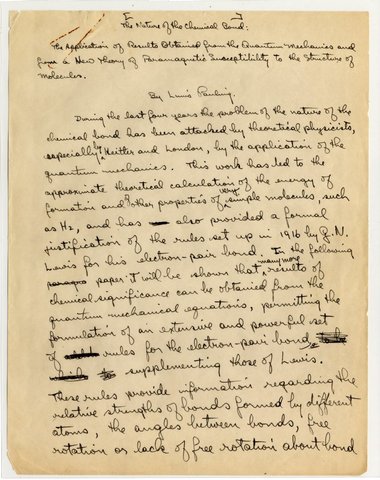 The Nature of the Chemical Bond:
The Application of Results Obtained from the Quantum Mechanics and
from a New Theory of Paramagnetic Susceptibility to the Structure of
Molecules.
By Linus Pauling.
During the last four years the problem of the nature of the
chemical bond has been attacked by theoretical physicists,
especially by Heitler and London, by the application of the
quantum mechanics. This work has led to the
approximate theoretical calculation of the energy of
formation and other properties of very simple molecules, such
as H2, and has also provided a formal
justification of the rules set up in 1916 by G.N.
Lewis for his electron-pair bond. In the following
paper it will be shown that many more results of
chemical significance can be obtained from the
quantum mechanical equations, permitting the
formulation of an extensive and powerful set
of rules for the electron-pair bond
supplementing those of Lewis.
These rules provide information regarding the
relative strengths of bonds formed by different
atoms, the angles between bonds, free
rotation or lack of free rotation about bond